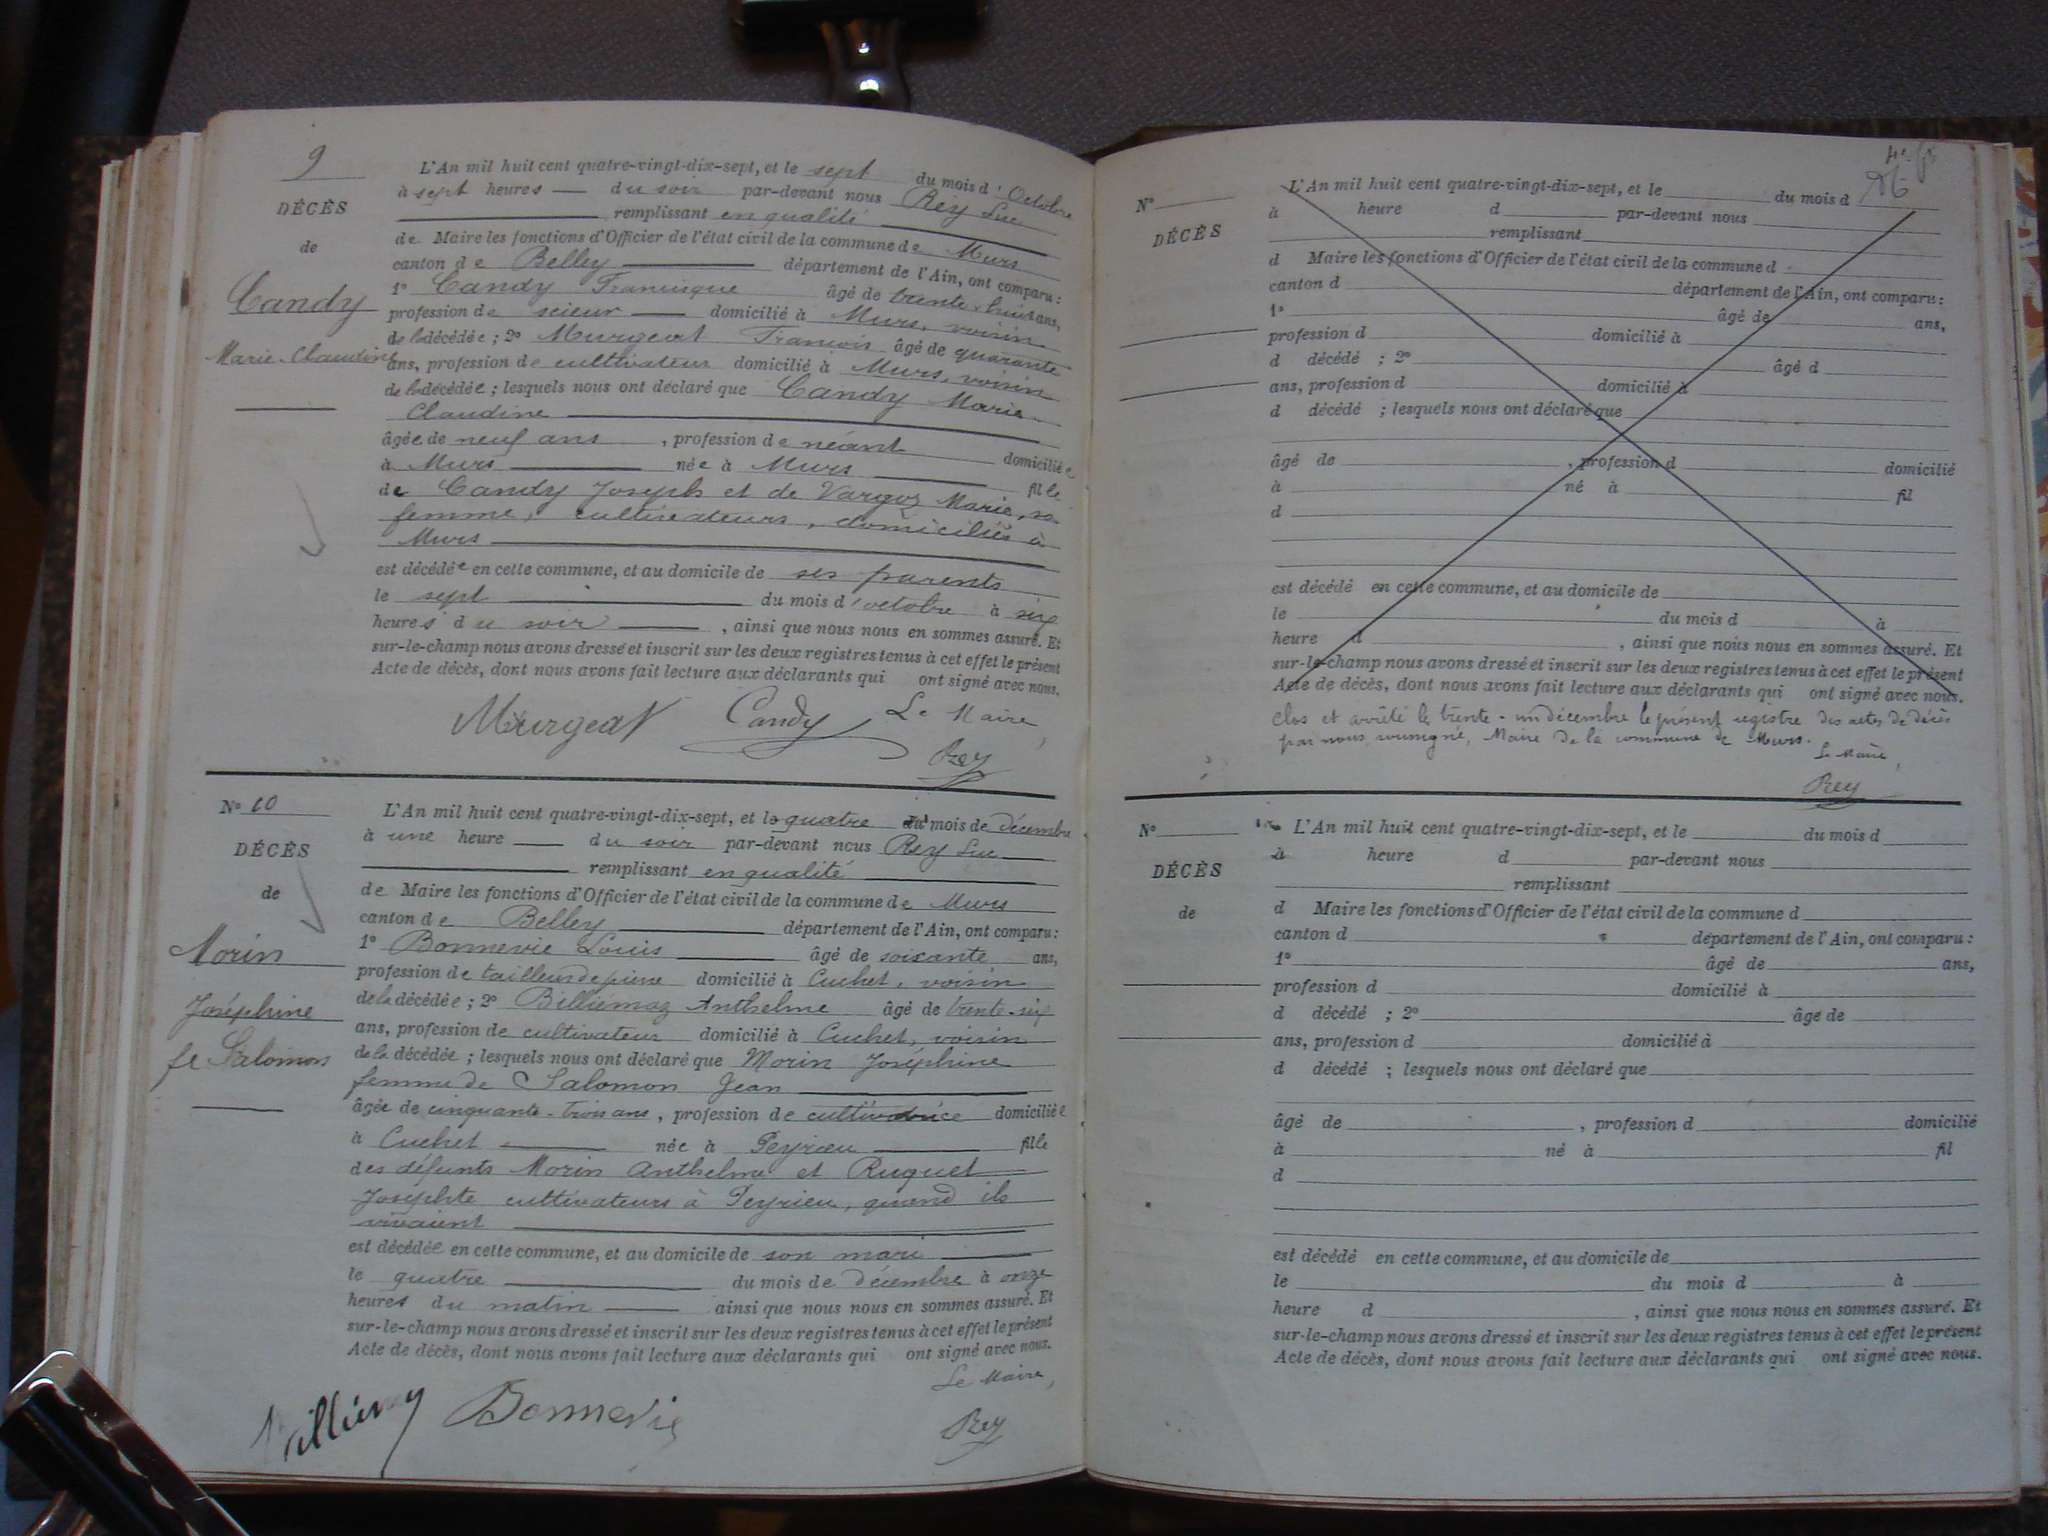 9
DÉCÈS
de
Candy
Marie-Claudine
L'An mil huit cent quatre-vingt-dix-sept, et le sept du mois d'Octobre
à sept heures du soir par-devant nous Rey Luc
remplissant en qualité
de Maire les fonctions d'Officier de l'état civil de la commune de Murs
canton de Belley département de l'Ain, ont comparu :
1º Candy Francisque âgé de trente-huit ans,
profession de scieur domicilié à Murs, voisin
de la décédée ; 2º Murgeat François âgé de quarante
ans, profession de cultivateur domicilié à Murs, voisin
de la décédée ; lesquels nous ont déclaré que Candy Marie
Claudine
âgée de neuf ans , profession de néant domiciliée
à Murs née à Murs fille
de Candy Joseph et de Vargoz Marie, sa
femme, cultivateurs, domiciliés à
Murs
est décédée en cette commune, et au domicile de ses parents
le sept du mois d'octobre à six
heures du soir , ainsi que nous nous en sommes assuré. Et
sur-le-champ nous avons dressé et inscrit sur les deux registres tenus à cet effet le présent
Acte de décès, dont nous avons fait lecture aux déclarants qui ont signé avec nous.
Murgeat Candy Le Maire,
Rey
Nº 10
DÉCÈS
de
Morin
Joséphine
fe Salomon
L'An mil huit cent quatre-vingt-dix-sept, et le quatre du mois de décembre
à une heure du soir par-devant nous Rey Luc
remplissant en qualité
de Maire les fonctions d'Officier de l'état civil de la commune de Murs
canton de Belley département de l'Ain, ont comparu :
1º Bonnevie Louis âgé de soixante ans,
profession de tailleur de pierre domicilié à Cuchet, voisin
de la décédée ; 2º Billiemaz Anthelme âgé de trente-six
ans, profession de cultivateur domicilié à Cuchet, voisin
de la décédée ; lesquels nous ont déclaré que Morin Joséphine
femme de Salomon Jean
âgée de cinquante-trois ans , profession de cultivatrice domiciliée
à Cuchet née à Peyrieu fille
des défunts Morin Anthelme et Ruguet
Josephte cultivateurs à Peyrieu, quand ils
vivaient
est décédée en cette commune, et au domicile de son mari
le quatre du mois de décembre à onze
heures du matin ainsi que nous nous en sommes assuré. Et
sur-le-champ nous avons dressé et inscrit sur les deux registres tenus à cet effet le présent
Acte de décès, dont nous avons fait lecture aux déclarants qui ont signé avec nous.
Le Maire,
Bonnevie Rey
Nº
DÉCÈS
L'An mil huit cent quatre-vingt-dix-sept, et le du mois d
à heure d par-devant nous
remplissant
d Maire les fonctions d'Officier de l'état civil de la commune d
canton d département de l'Ain, ont comparu :
1º âgé de ans,
profession d domicilié à
d décédé ; 2º âgé d
ans, profession d domicilié à
d décédé ; lesquels nous ont déclaré que
âgé de , profession d domicilié
à né à fil
d
est décédé en cette commune, et au domicile de
le du mois d à
heure d , ainsi que nous nous en sommes assuré. Et
sur-le-champ nous avons dressé et inscrit sur les deux registres tenus à cet effet le présent
Acte de décès, dont nous avons fait lecture aux déclarants qui ont signé avec nous.
Clos et arrêté le trente-un décembre le présent registre des actes de décès
par nous soussigné, Maire de la commune de Murs.
Le Maire,
Rey
Nº
DÉCÈS
de
L'An mil huit cent quatre-vingt-dix-sept, et le du mois d
à heure d par-devant nous
remplissant
d Maire les fonctions d'Officier de l'état civil de la commune d
canton d département de l'Ain, ont comparu :
1º âgé de ans,
profession d domicilié à
d décédé ; 2º âgé de
ans, profession d domicilié à
d décédé ; lesquels nous ont déclaré que
âgé de , profession d domicilié
à né à fil
d
est décédé en cette commune, et au domicile de
le du mois d à
heure d , ainsi que nous nous en sommes assuré. Et
sur-le-champ nous avons dressé et inscrit sur les deux registres tenus à cet effet le présent
Acte de décès, dont nous avons fait lecture aux déclarants qui ont signé avec nous.